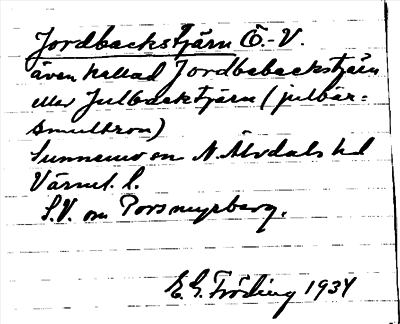 Jordbackstjärn Ö.-V.
även kallad Jordbebackstjärn
eller Julbackstjärn (julbär=
smultron)
Sunnemo sn N. Älvdals hd
Värml. l.
S.V. om Porsmyrberg.
E. G. Fröding 1934